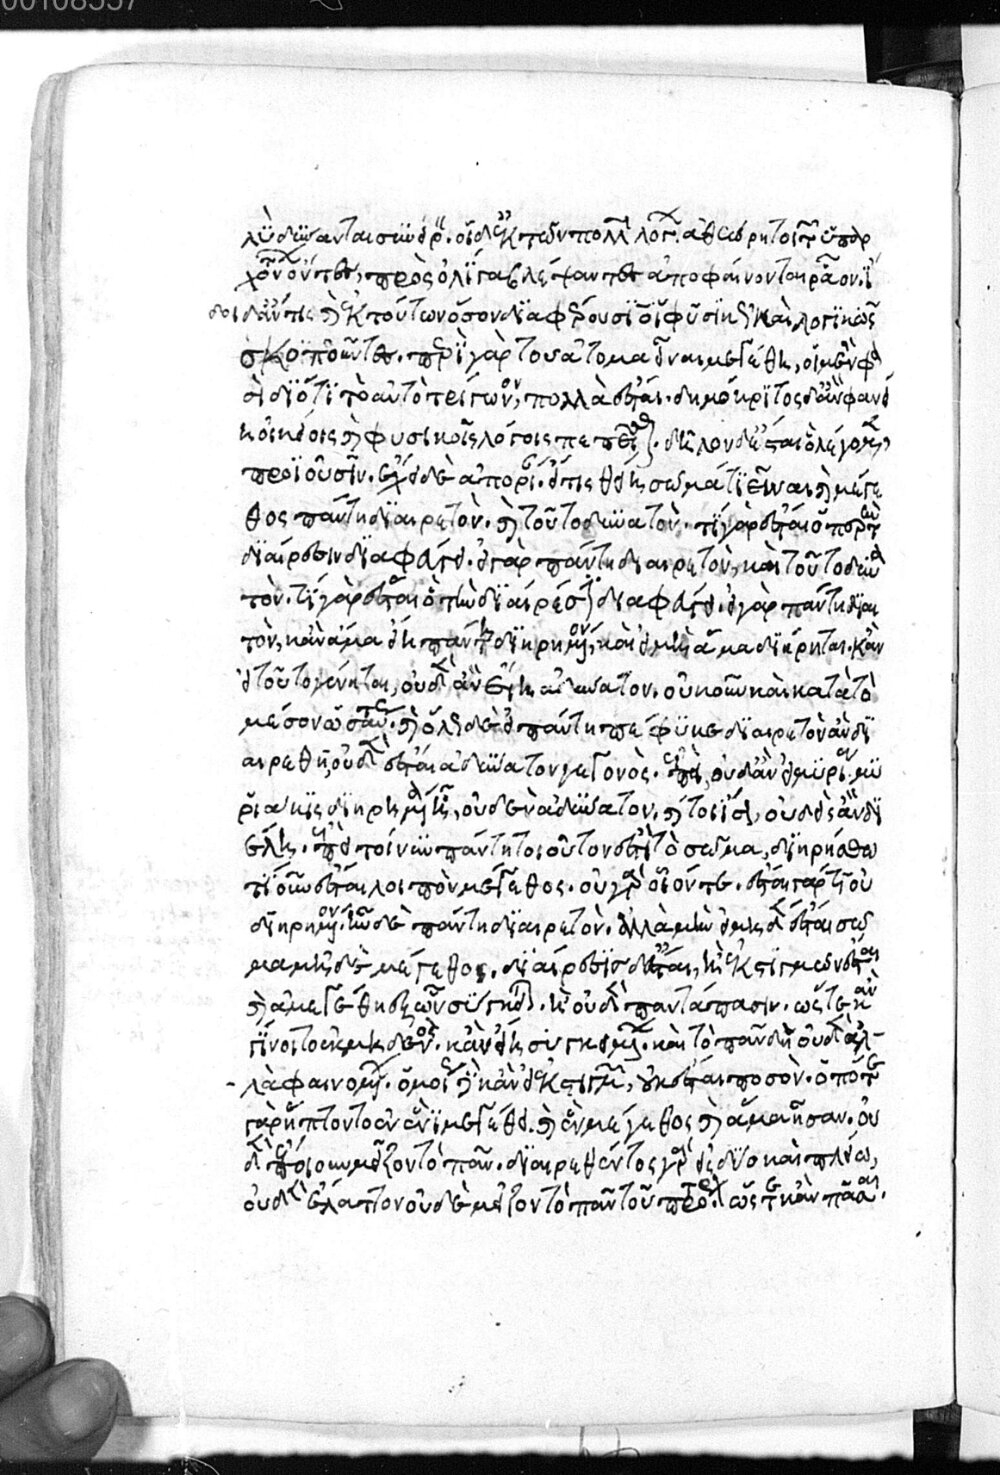 λὺ δύνανται συνείρειν. οἱ δ' ἐκ τῶν πολλῶν λόγων ἀθεώρητοι τῶν ὑπαρ
χόντων ὄντες, πρὸς ὀλίγα βλέψαντες ἀποφαίνονται ῥᾶον. ἴ
δοι δ' ἄν τις καὶ ἐκ τούτων ὅσον διαφέρουσιν οἱ φυσικῶς καὶ λογικῶς
σκοποῦντες. περὶ γὰρ τοῦ ἄτομα εἶναι μεγέθη, οἱ μὲν φα
σὶ διότι τὸ αὐτοτρίγωνον, πολλὰ ἔσται. δημόκριτος δ' ἂν φανεί
η οἰκείοις καὶ φυσικοῖς λόγοις πεπεῖσθαι. δῆλον δ' ἔσται ὃ λέγομεν,
προϊοῦσιν. ἔχει δὲ ἀπορίαν. εἴ τις θείη σῶμά τι εἶναι καὶ μέγε
θος πάντη διαιρετὸν. καὶ τοῦτο δυνατὸν. τί γὰρ ἔσται ὅπερ τὴν
διαίρεσιν διαφεύγει. εἰ γὰρ πάντη διαιρετὸν, καὶ τοῦτο δυνα
τὸν. τί γὰρ ἔσται ὃ τὴν διαίρεσιν διαφεύγει. εἰ γὰρ πάντη διαι
τὸν, κἂν ἅμα εἴη πάντη διῃρημένον, καὶ εἰ μὴ ἅμα διῄρηται. κἂν
εἰ τοῦτο γένηται, οὐδὲν ἂν εἴη ἀδύνατον. οὐκοῦν καὶ κατὰ τὸ
μέσον ὡσαύτως. καὶ ὅλως δὲ εἰ πάντη πέφυκε διαιρετὸν ἂν δι
αιρεθῆ, οὐδὲν ἔσται ἀδύνατον γεγονὸς. ἐπεὶ οὐδ' ἂν εἰς μυρία μυ
ριάκις διῃρημένα ᾖ, οὐδὲν ἀδύνατον. καίτοι ἴσως, οὐδεὶς ἂν δι
έλη. ἐπεὶ τοίνυν πάντη τοιοῦτον ἐστὶ τὸ σῶμα, διῃρήσθω
τί οὖν ἔσται λοιπὸν μέγεθος. οὐ γὰρ οἷόν τε. ἔσται γάρ τι οὐ
διῃρημένον. ἦν δὲ πάντη διαιρετὸν. ἀλλὰ μὴν εἰ μηδὲν ἔσται σῶ
μα μηδὲ μέγεθος. διαίρεσις δ' ἔσται, ἢ ἐκ στιγμῶν ἔσται
καὶ ἀμεγέθη ἐξ ὧν σύγκειται. ἢ οὐδὲν παντάπασιν. ὥστε κἂν
γίνοιτο ἐκ μηδενὸς. κἂν εἴη συγκείμενον. καὶ τὸ πᾶν δὴ οὐδὲν ἀλ-
λὰ φαινόμενον. ὁμοίως καὶ κἂν εἰ ἐκ στιγμῶν, οὐκ ἔσται ποσὸν. ὁπότε
γὰρ ἥπτοντο καὶ ἓν ἦν μέγεθος καὶ ἅμα ἦσαν. οὐ
δὲν ἐποίουν μεῖζον τὸ πᾶν. διαιρεθέντος γὰρ εἰς δύο καὶ πλείω,
οὐδὲν ἔλαττον οὐδὲ μεῖζον τὸ πᾶν τοῦ πρότερον. ὥστε κἂν πᾶσαι.